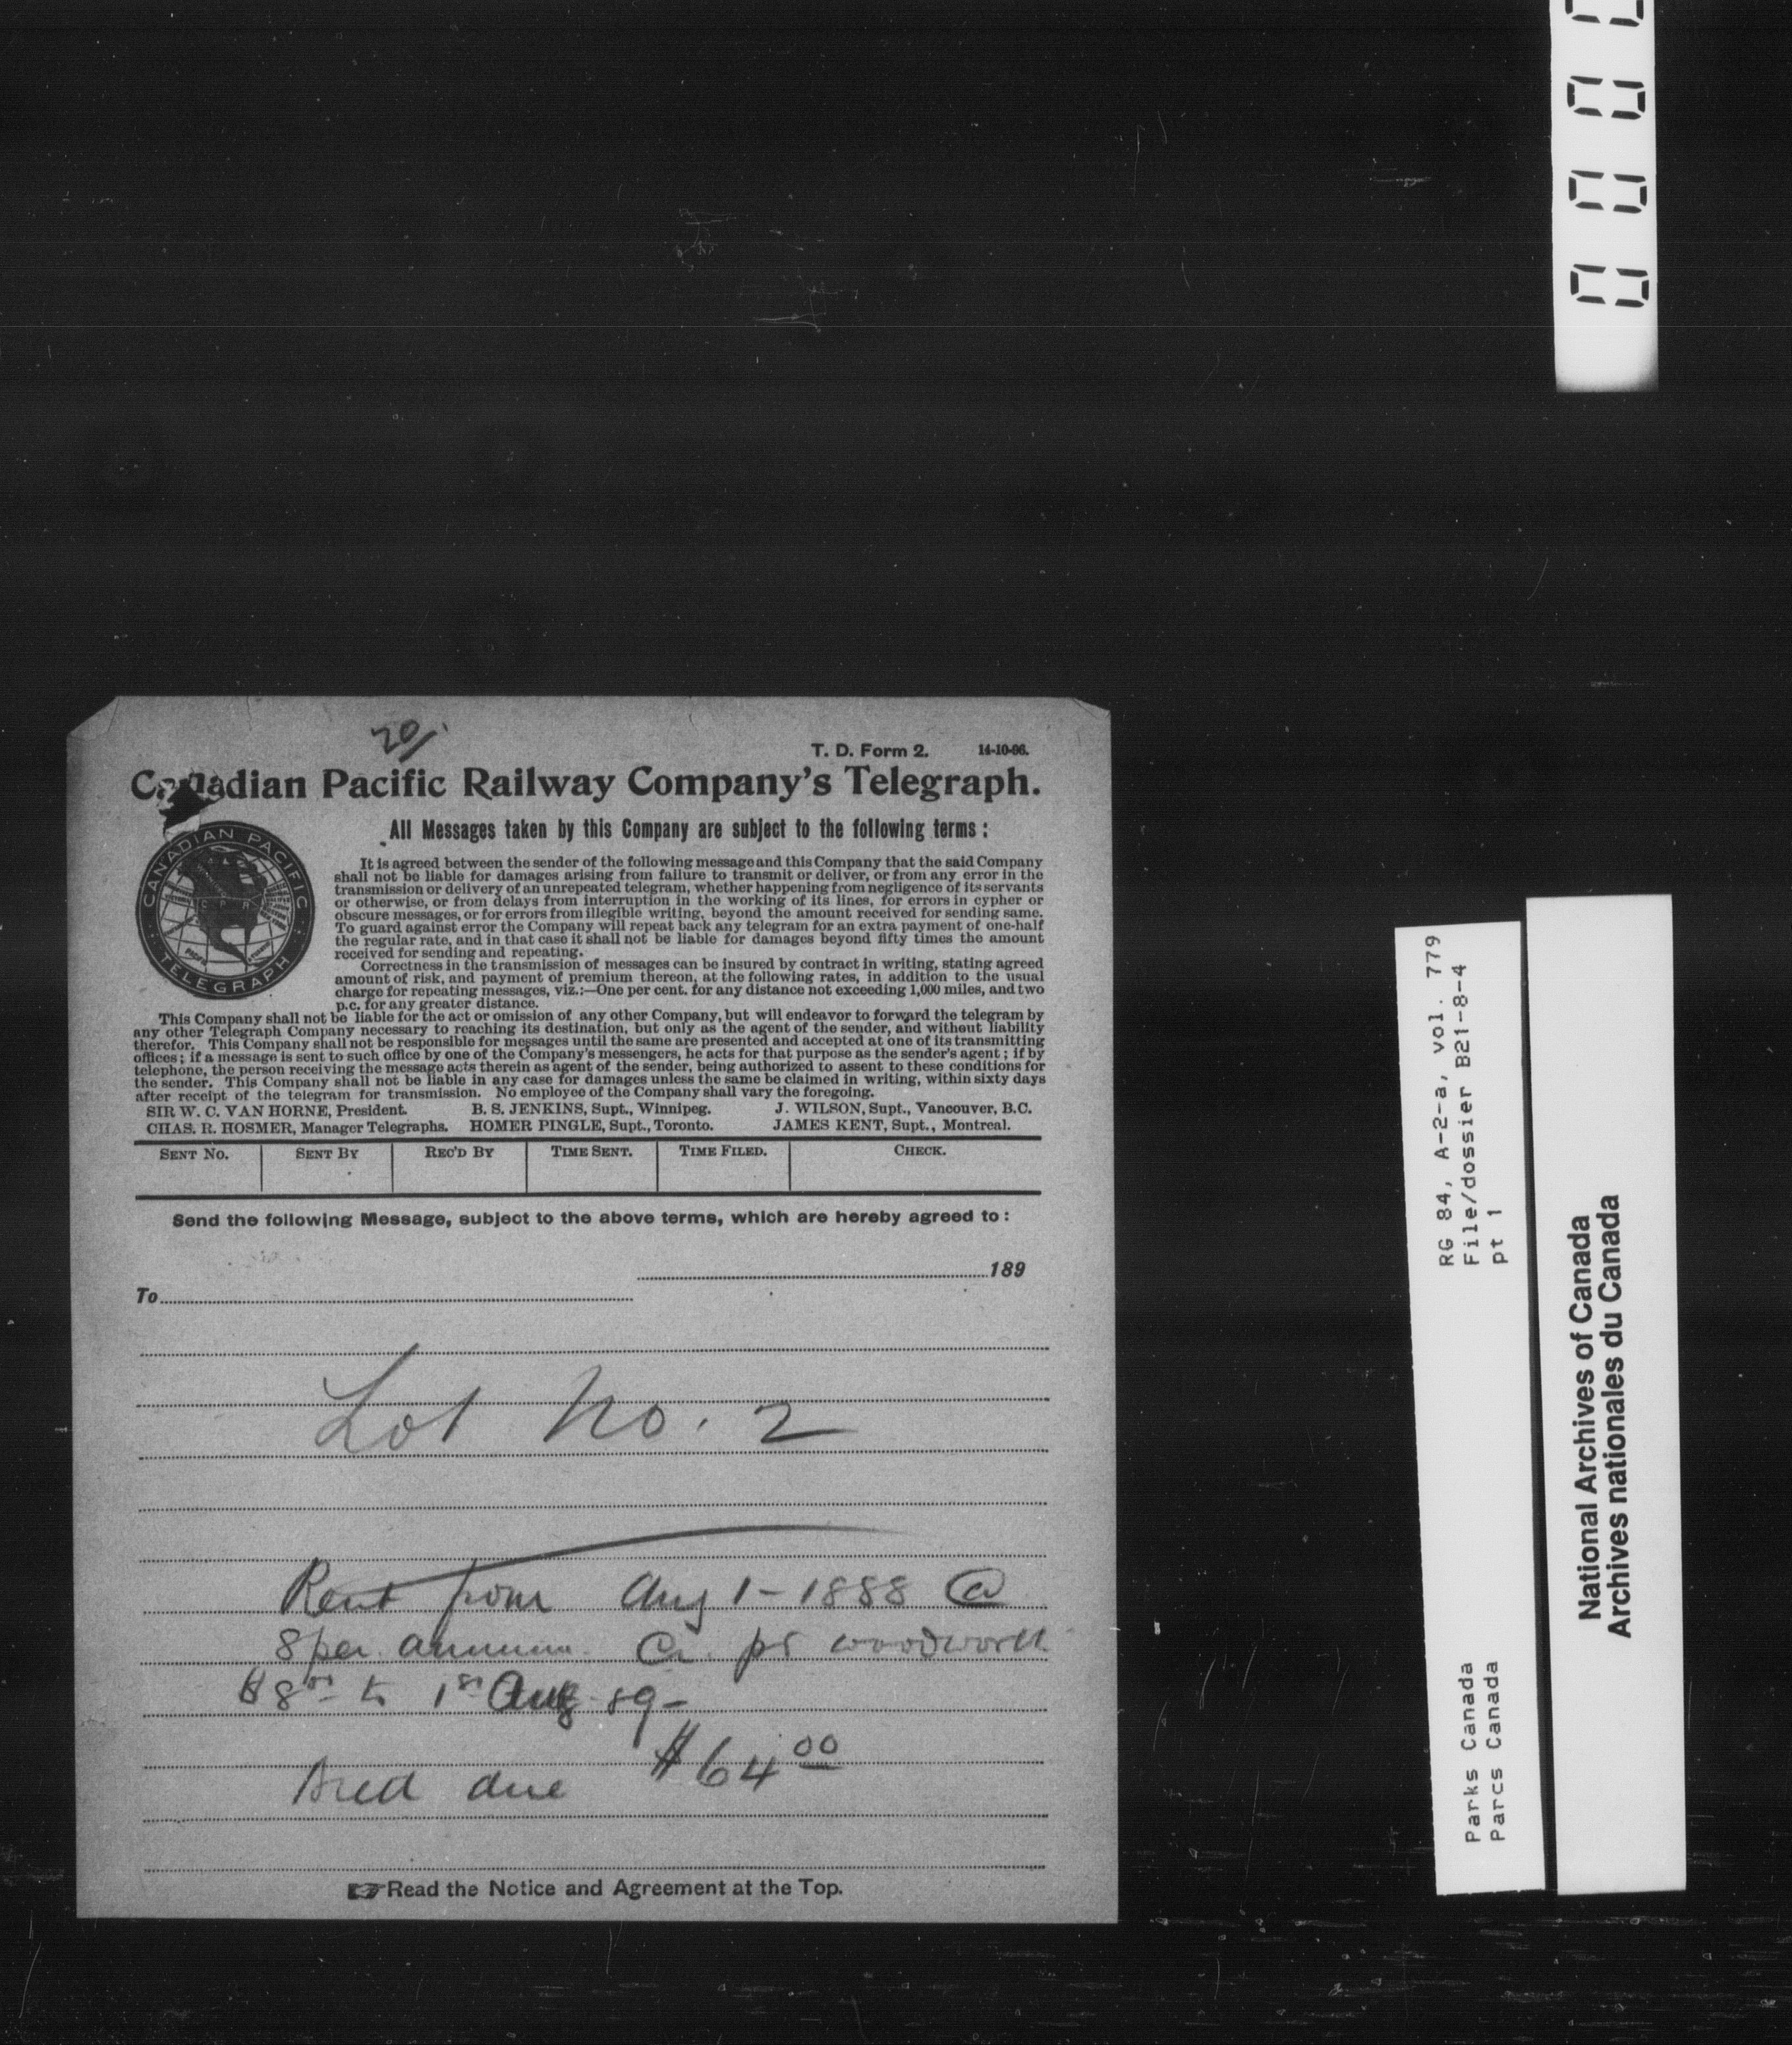 20/.
T. D. Form 2. 14-10-96.
Canadian Pacific Railway Company's Telegraph.
All Messages taken by this Company are subject to the following terms :
CANADIAN PACIFIC
C P R
TELEGRAPH
It is agreed between the sender of the following message and this Company that the said Company
shall not be liable for damages arising from failure to transmit or deliver, or from any error in the
transmission or delivery of an unrepeated telegram, whether happening from negligence of its servants
or otherwise, or from delays from interruption in the working of its lines, for errors in cypher or
obscure messages, or for errors from illegible writing, beyond the amount received for sending same.
To guard against error the Company will repeat back any telegram for an extra payment of one-half
the regular rate, and in that case it shall not be liable for damages beyond fifty times the amount
received for sending and repeating.
Correctness in the transmission of messages can be insured by contract in writing, stating agreed
amount of risk, and payment of premium thereon, at the following rates, in addition to the usual
charge for repeating messages, viz.:—One per cent. for any distance not exceeding 1,000 miles, and two
p.c. for any greater distance.
This Company shall not be liable for the act or omission of any other Company, but will endeavor to forward the telegram by
any other Telegraph Company necessary to reaching its destination, but only as the agent of the sender, and without liability
therefor. This Company shall not be responsible for messages until the same are presented and accepted at one of its transmitting
offices ; if a message is sent to such office by one of the Company's messengers, he acts for that purpose as the sender's agent ; if by
telephone, the person receiving the message acts therein as agent of the sender, being authorized to assent to these conditions for
the sender. This Company shall not be liable in any case for damages unless the same be claimed in writing, within sixty days
after receipt of the telegram for transmission. No employee of the Company shall vary the foregoing.
SIR W. C. VAN HORNE, President. B. S. JENKINS, Supt., Winnipeg. J. WILSON, Supt., Vancouver, B.C.
CHAS. R. HOSMER, Manager Telegraphs. HOMER PINGLE, Supt., Toronto. JAMES KENT, Supt., Montreal.
SENT NO. SENT BY REC'D BY TIME SENT. TIME FILED. CHECK.
Send the following Message, subject to the above terms, which are hereby agreed to :
189
To
Lot No. 2
Rent from Aug 1 - 1888 @
8 per annum. Cr. pr woodworth
$8 00 to 1st Aug 89 -
due $64 00
Read the Notice and Agreement at the Top.
0 0 0 0
RG 84, A-2-a, vol. 779
File/dossier B21-8-4
pt 1
Parks Canada
Parcs Canada
National Archives of Canada
Archives nationales du Canada